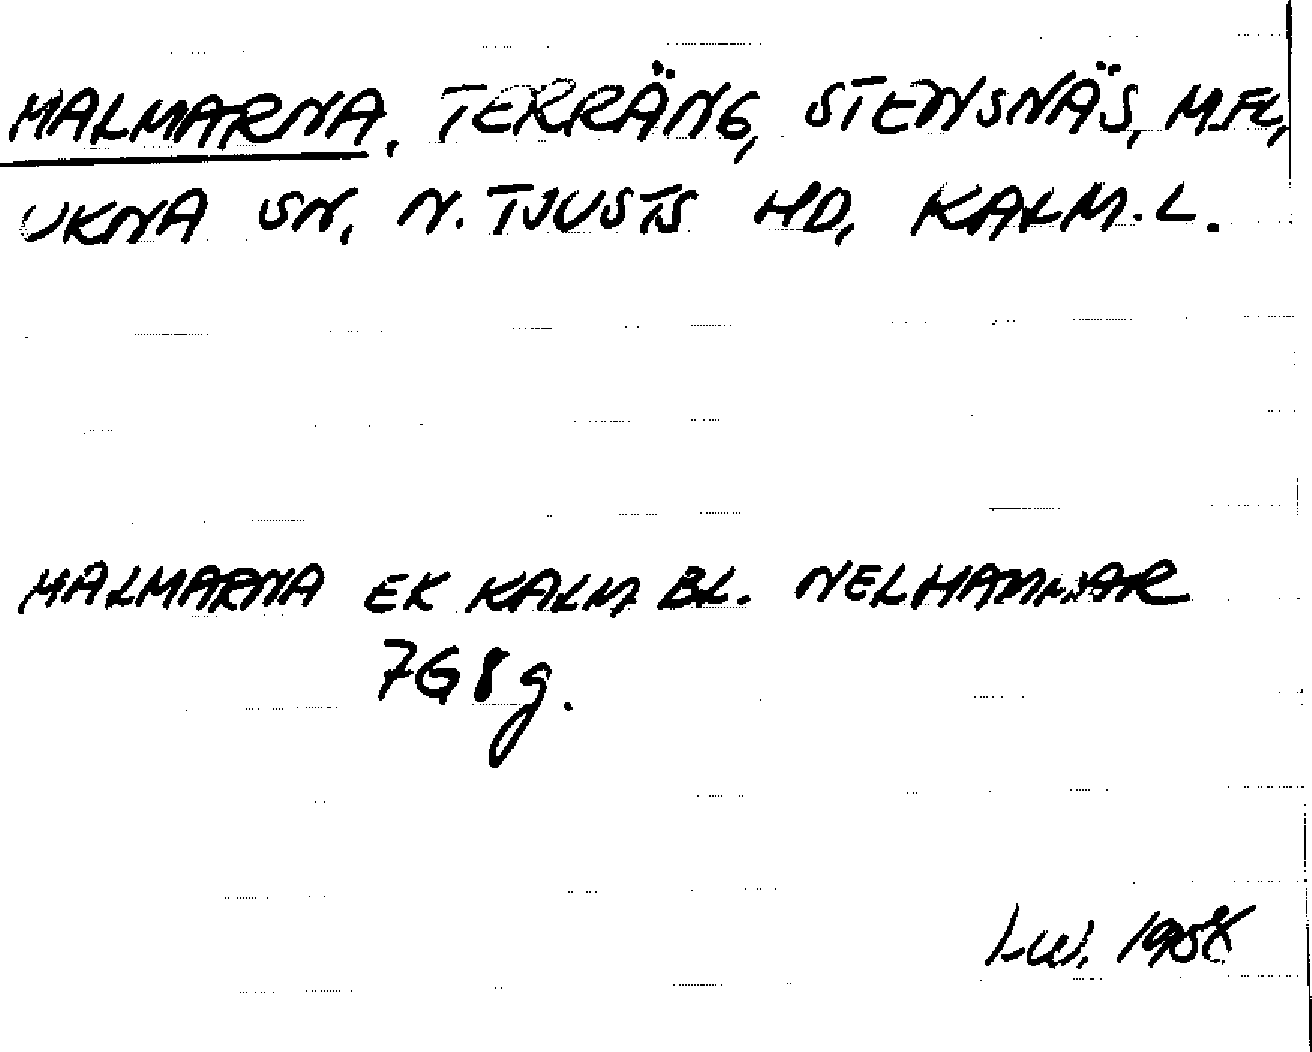 MALMARNA, TERRÄNG, STENSNÄS, M.FL,
UKNA SN, N. TJUSTS HD, KALM. L.
MALMARNA EK KALM. BL. NELHAMMAR
7G8g.
LW. 1958